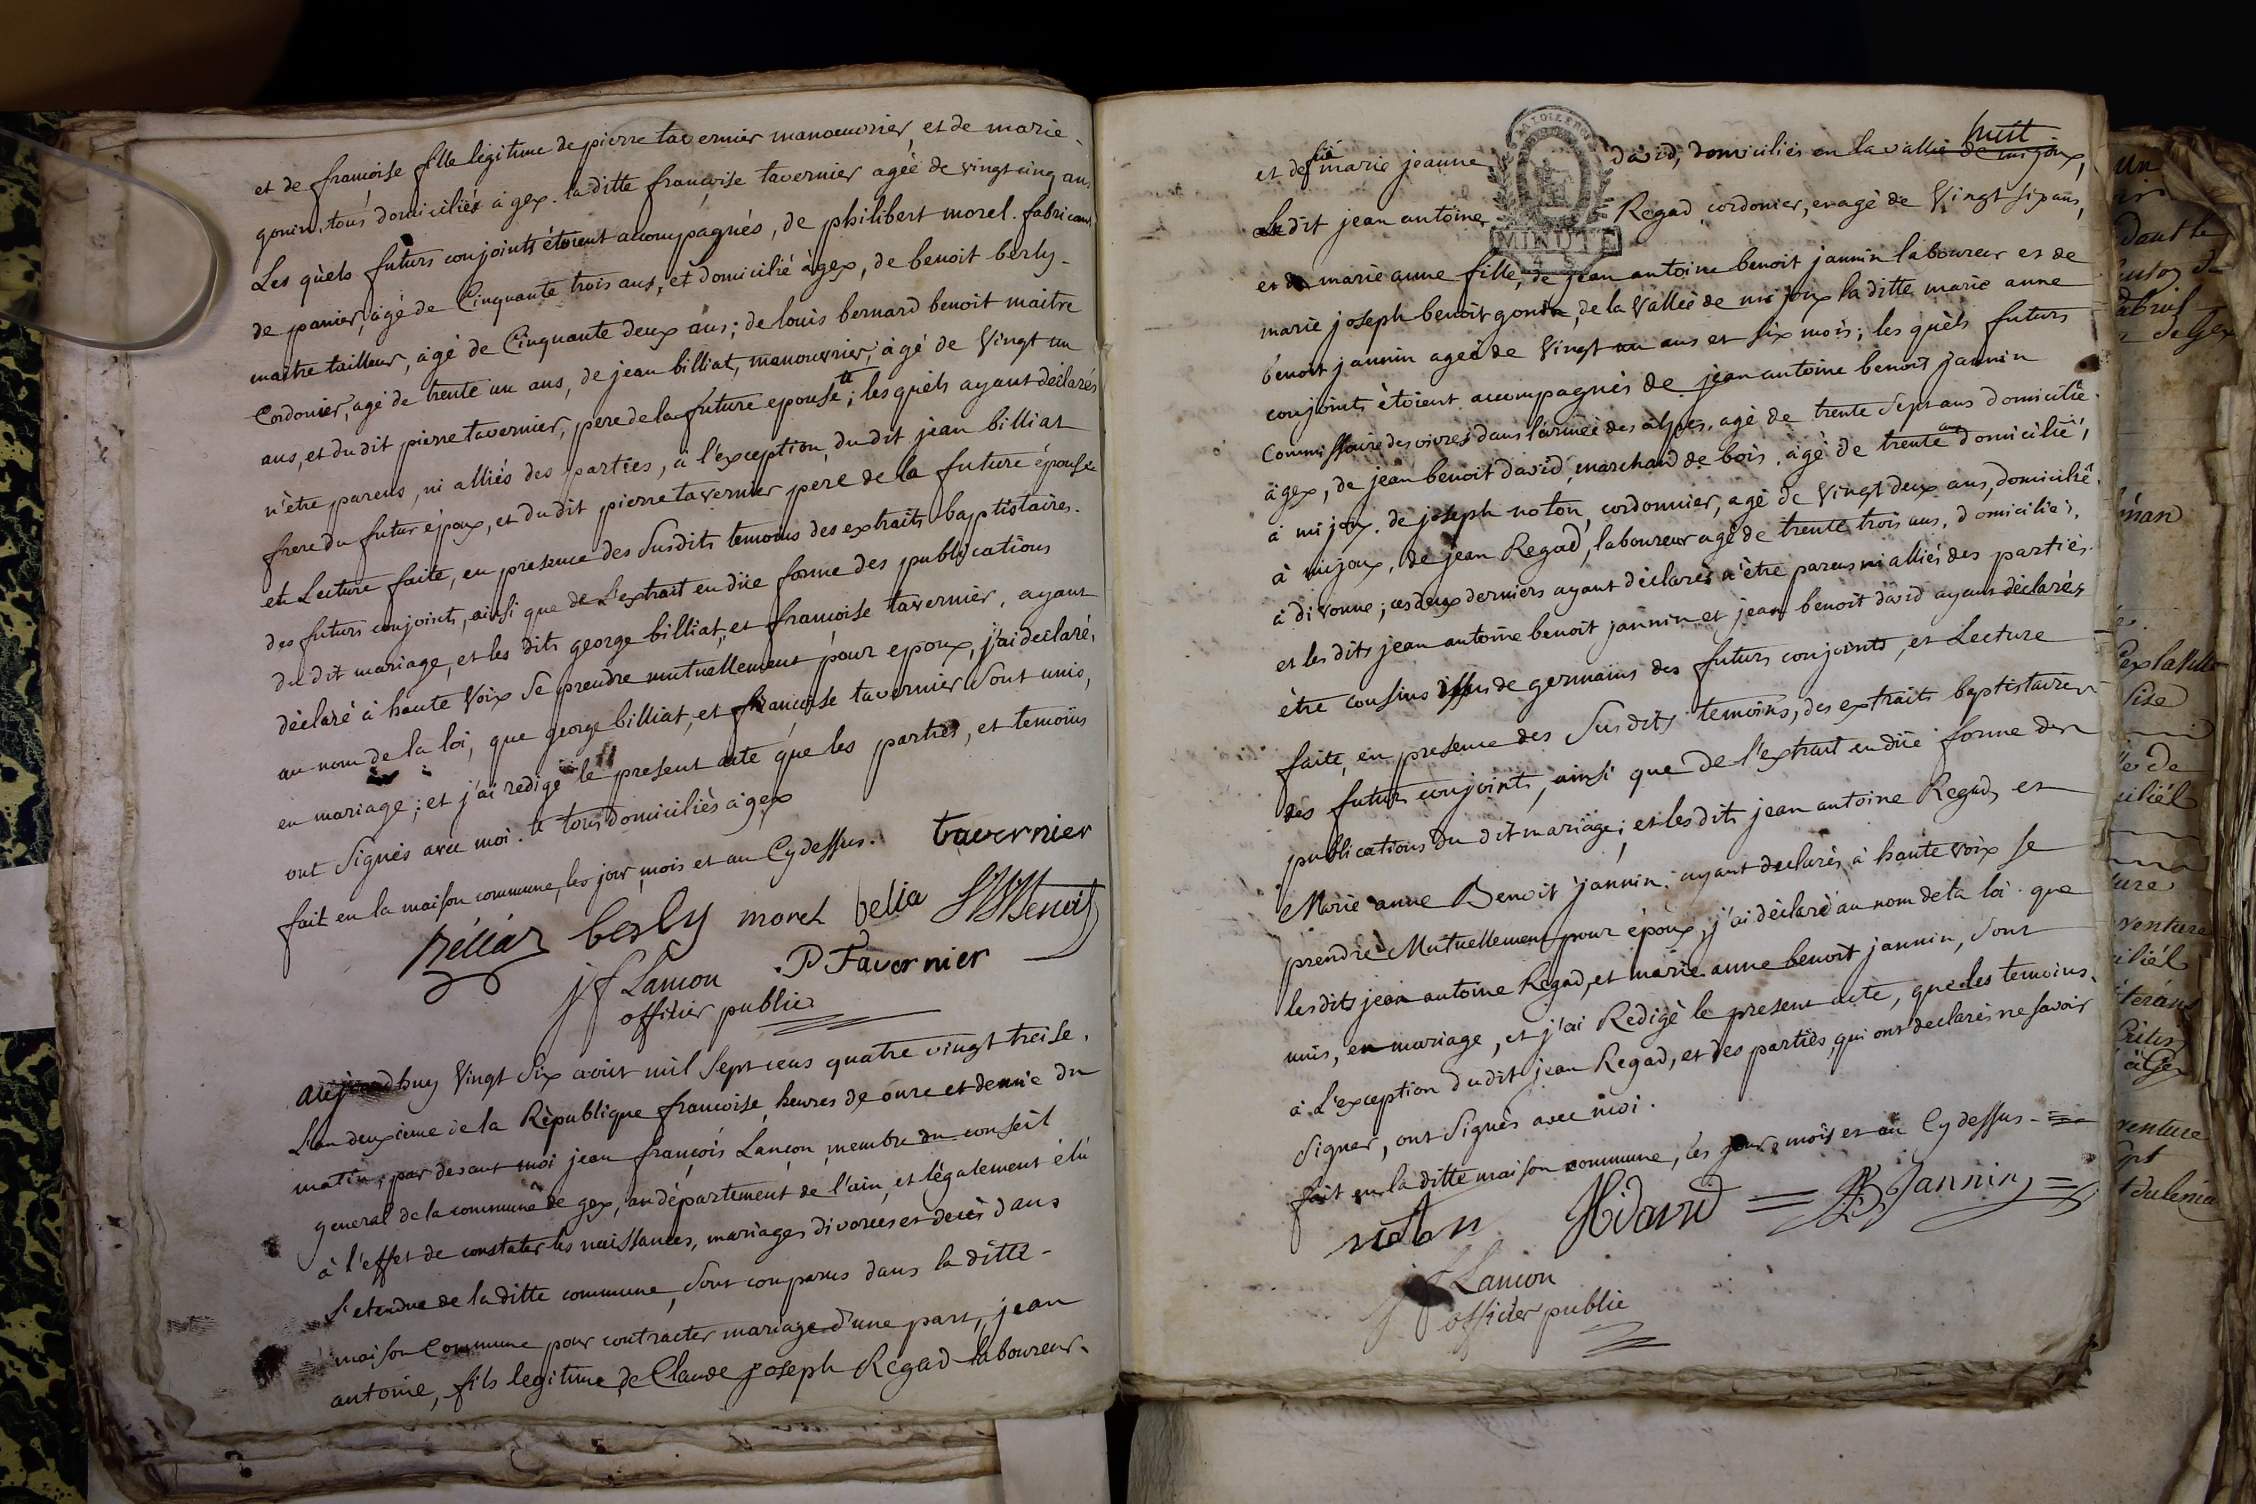 et de francoise fille legitime de pierre tavernier manoeuvrier, et de marie
gonin, tous domiciliés à gex. la ditte françoise tavernier agée de vingt cinq ans
Les quels futurs conjoints étoient acompagnés, de philibert morel. fabricant
de panier, agé de Cinquante trois ans, et domicilié à gex, de benoit berly
maitre tailleur, agé de Cinquante deux ans; de louis bernard benoit maitre
Cordonier, agé de trente un ans, de jean billiat, manouvrier, agé de Vingt un
ans, et du dit pierre tavernier, pere de la future epouse; les quels ayant déclarés
n'être parens, ni alliés des parties, à l'exception, du dit jean billiat
frere du futur époux, et du dit pierre tavernier pere de la future épouse
et Lecture faite, en presence des susdits temoins des extraits baptistaires.
des futurs conjoints, ainsi que de L'extrait en düe forme des publications
du dit mariage, et les dits george billiat, et francoise tavernier, ayant
déclaré à haute Voix se prendre mutuellement pour epoux, j'ai declaré,
au nom de la loi, que george billiat, et françoise tavernier sont unis,
en mariage; et j'ai redigé le present acte que les parties, et temoins
ont signés avec moi. tous domiciliés à gex
fait en la maison commune, les jour, mois et an Cydessus. tavernier
berly morel belia Benoit
jf Lancon P Tavernier
officier public
aujourdhuy Vingt six août mil sept cens quatre vingt treise.
L'an deuxieme de la République francoise, heures de onze et demie du
matin, par devant moi jean françois Lançon, membre du conseil
general de la commune de gex, au département de l'ain, et légalement élu
à l'effet de constater les naissances, mariages divorces et decès dans
l'etendue de la ditte commune, sont comparus dans la ditte
maison Commune pour contracter mariage d'une part, jean
antoine, fils legitime de Claude joseph Regad laboureur.
huit
et de marie jeanne david, domiciliés en la vallée de mijoux,
MINUTE
le dit jean antoine Regad cordonier, en agé de Vingt six ans,
et marie anne fille, de jean antoine benoit jannin laboureur et de
marie joseph benoit gonin, de la Vallée de mijoux la ditte marie anne
benoit jannin ageé de Vingt ans et six mois; les quels futurs
conjoints étoient acompagnés de jean antoine benoit jannin
Commissaire des vivres dans l'armée des alpes. agé de trente sept ans domicilié
à gex, de jean benoit david, marchand de bois. agé de trente ans domicilié,
à mijoux. de joseph noton, cordonnier, agé de Vingt deux ans, domicilié
à mijoux, de jean Regad, laboureur agé de trente trois ans, domicilié,
à divonne; ces deux derniers ayant déclarés n'être parens ni alliés des parties.
et les dits jean antoine benoit jannin et jean benoit david ayant déclarés
être cousins issus de germains des futurs conjoints, et Lecture
faite, en presence des susdits temoins, des extraits baptistaires
des futurs conjoints, ainsi que de l'extrait en düe forme des
publications du dit mariage; et les dits jean antoine Regad, et
Marie anne Benoit jannin, ayant declarés à haute voix se
prendre Mutuellement pour époux, j'ai déclaré au nom de la loi que
les dits jean antoine Regad, et marie anne benoit jannin, sont
unis, en mariage, et j'ai Redigé le present acte, que les temoins
à L'exception du dit jean Regad, et des parties, qui ont declarés ne savoir
signer, ont signés avec moi.
fait en la ditte maison commune, les jour, mois et an Cydessus
noton david Jannin
jf Lancon
officier public